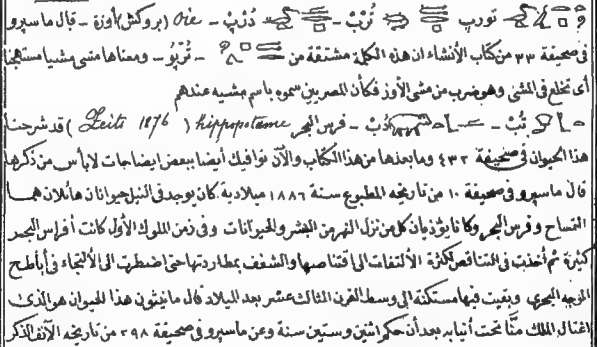 تورپ تُرْپْ – دُرْپْ – Oie (بروكش) أوزة – قال ماسپرو
فى صحيفة ٣٣ من كتاب الأنشاء ان هذه الكلمة مشتقة من – تْرْپُو – ومعناها مشى مشيا مستهجنا
أى تخلع فى المشى وهو ضرب من مشى الأوز فكأن المصريين سموه باسم مشيه عندهم
تُبْ – دُبْ – فرس البحر hippopotame (Zeits 1876) قد شرحنا
هذا الحيوان فى صحيفة ٤٣٢ وما بعدها من هذا الكتاب والآن نوافيك أيضا ببعض ايضاحات لا بأس من ذكرها
قال ماسپرو فى صحيفة ١٠ من تاريخه المطبوع سنة ١٨٨٦ ميلادية كان يوجد فى النيل حيوانان هائلان هما
التمساح وفرس البحر وكانا يؤذيان كل من نزل النهر من البشر والحيوانات وفى زمن الملوك الأول كانت أفراس البحر
كثيرة ثم أخذت فى التناقص لكثرة الألتفات الى اقتناصها والشغف بمطاردتها حتى اضطرت الى الألتجاء فى أباطح
الوجه البحرى وبقيت فيها مستكنة الى وسط القرن الثالث عشر بعد الميلاد قال مانيثون هذا الحيوان هو الذى
اغتال الملك منّا تحت أنيابه بعد أن حكم اثنين وستين سنة وعن ماسپرو فى صحيفة ٢٩٨ من تاريخه الآنف الذكر